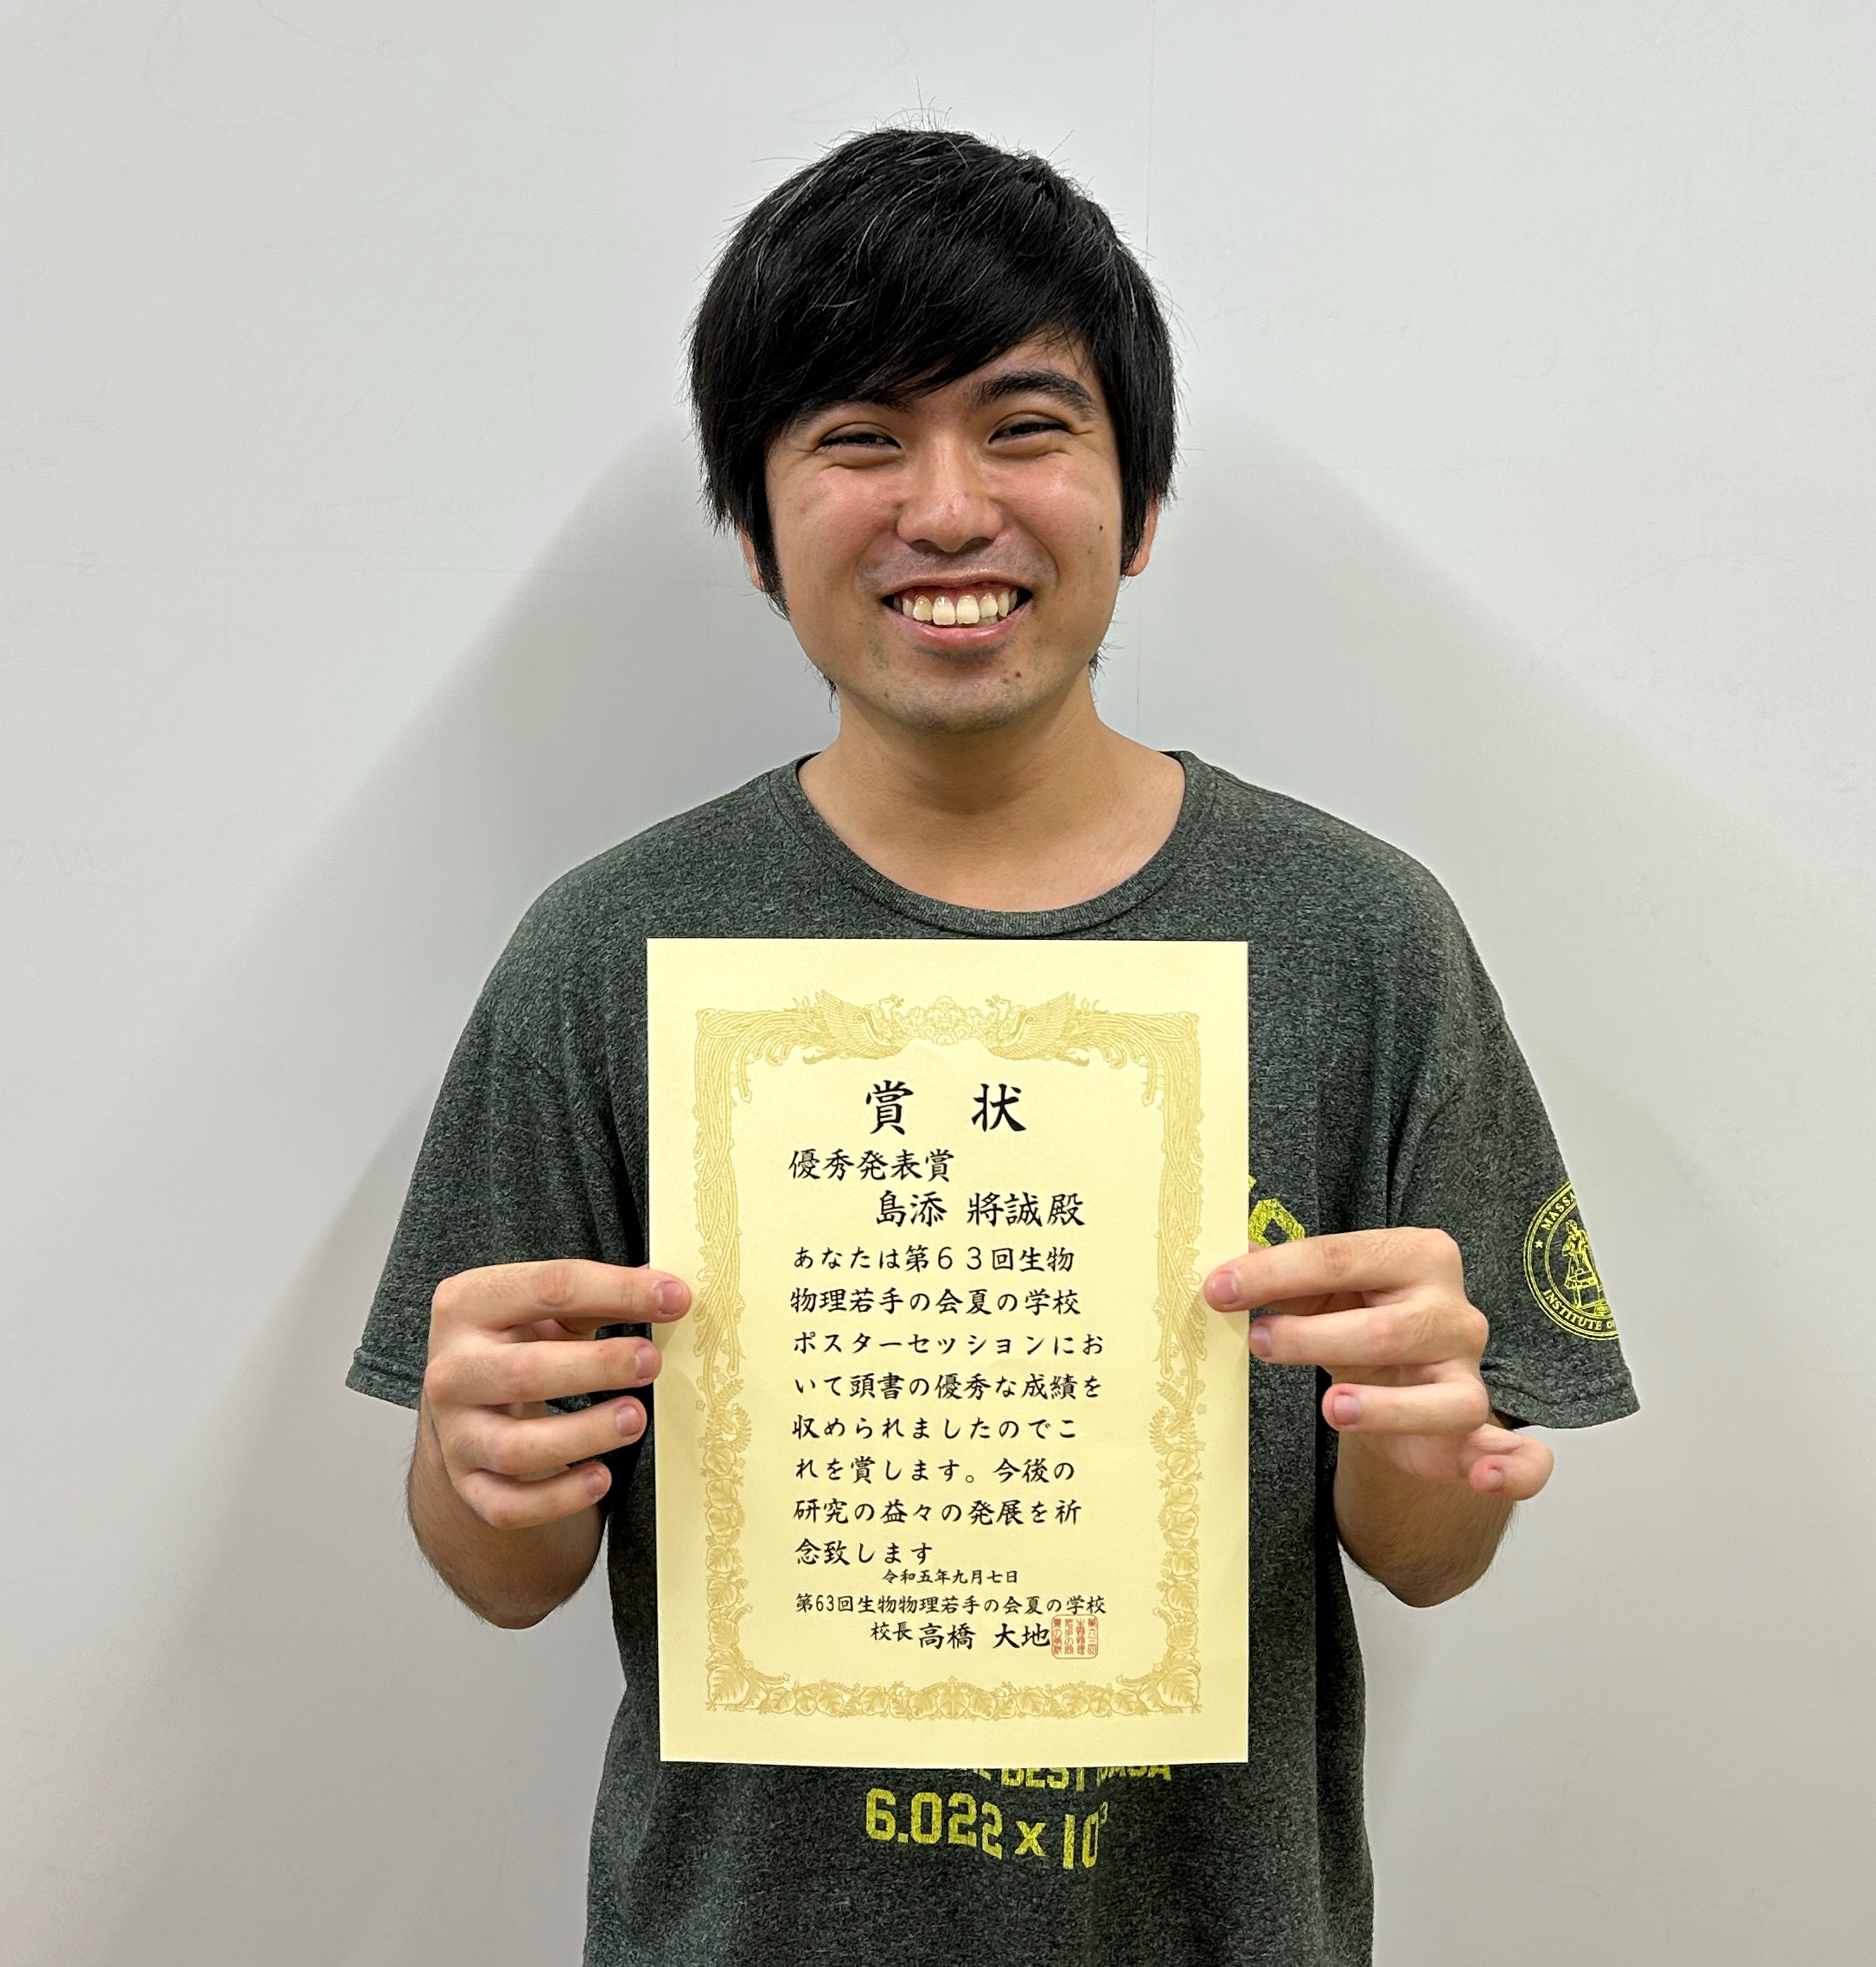 賞 状
優秀発表賞
島添 將誠 殿
あなたは第６３回生物
物理若手の会夏の学校
ポスターセッションにお
いて頭書の優秀な成績を
収められましたのでこ
れを賞します。今後の
研究の益々の発展を祈
念致します
令和五年九月七日
第63回生物物理若手の会夏の学校
校長 高橋 大地
MASSA
INSTITUTE OF
BEST
6.022 x 10